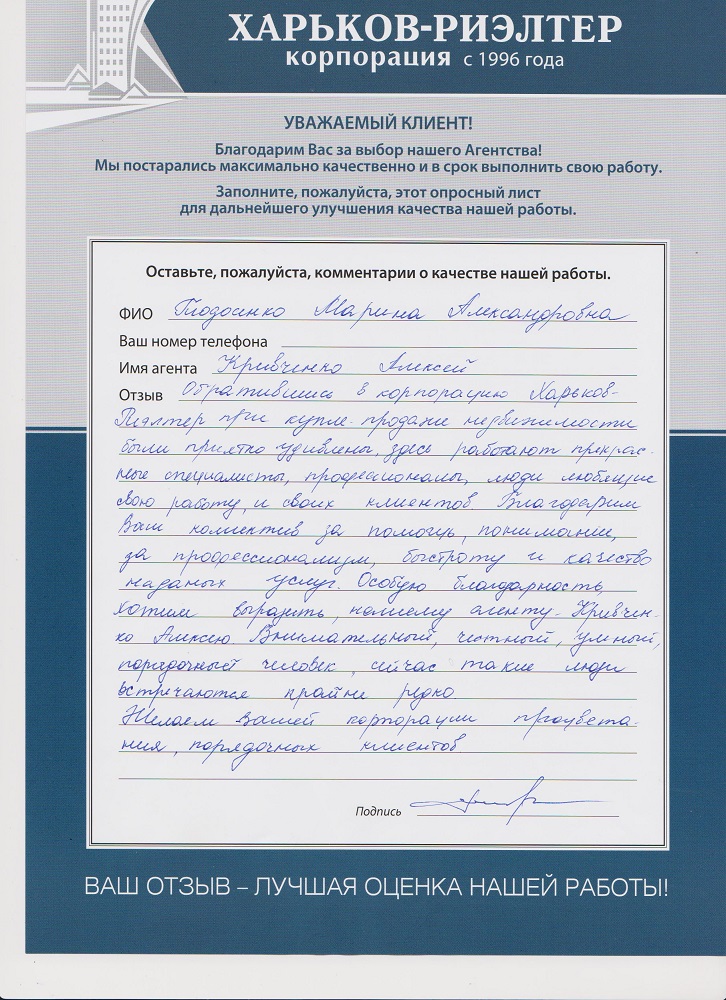 ХАРЬКОВ-РИЭЛТЕР
корпорация с 1996 года
УВАЖАЕМЫЙ КЛИЕНТ!
Благодарим Вас за выбор нашего Агентства!
Мы постарались максимально качественно и в срок выполнить свою работу.
Заполните, пожалуйста, этот опросный лист
для дальнейшего улучшения качества нашей работы.
Оставьте, пожалуйста, комментарии о качестве нашей работы.
ФИО Тодосенко Марина Александровна
Ваш номер телефона
Имя агента Кривченко Алексей
Отзыв Обратившись в корпорацию Харьков-
Риэлтер при купле-продаже недвижимости
были приятно удивлены, здесь работают прекрас-
ные специалисты, профессионалы, люди любящие
свою работу, и своих клиентов. Благодарим
Ваш коллектив за помощь, понимание,
за профессионализм, быстроту и качество
наданых услуг. Особую благодарность,
хотим выразить, нашему агенту - Кривчен-
ко Алексею. Внимательный, честный, умный,
порядочный человек, сейчас такие люди
встречаются крайне редко
Желаем вашей корпорации процвета-
ния, порядочных клиентов
Подпись
ВАШ ОТЗЫВ – ЛУЧШАЯ ОЦЕНКА НАШЕЙ РАБОТЫ!